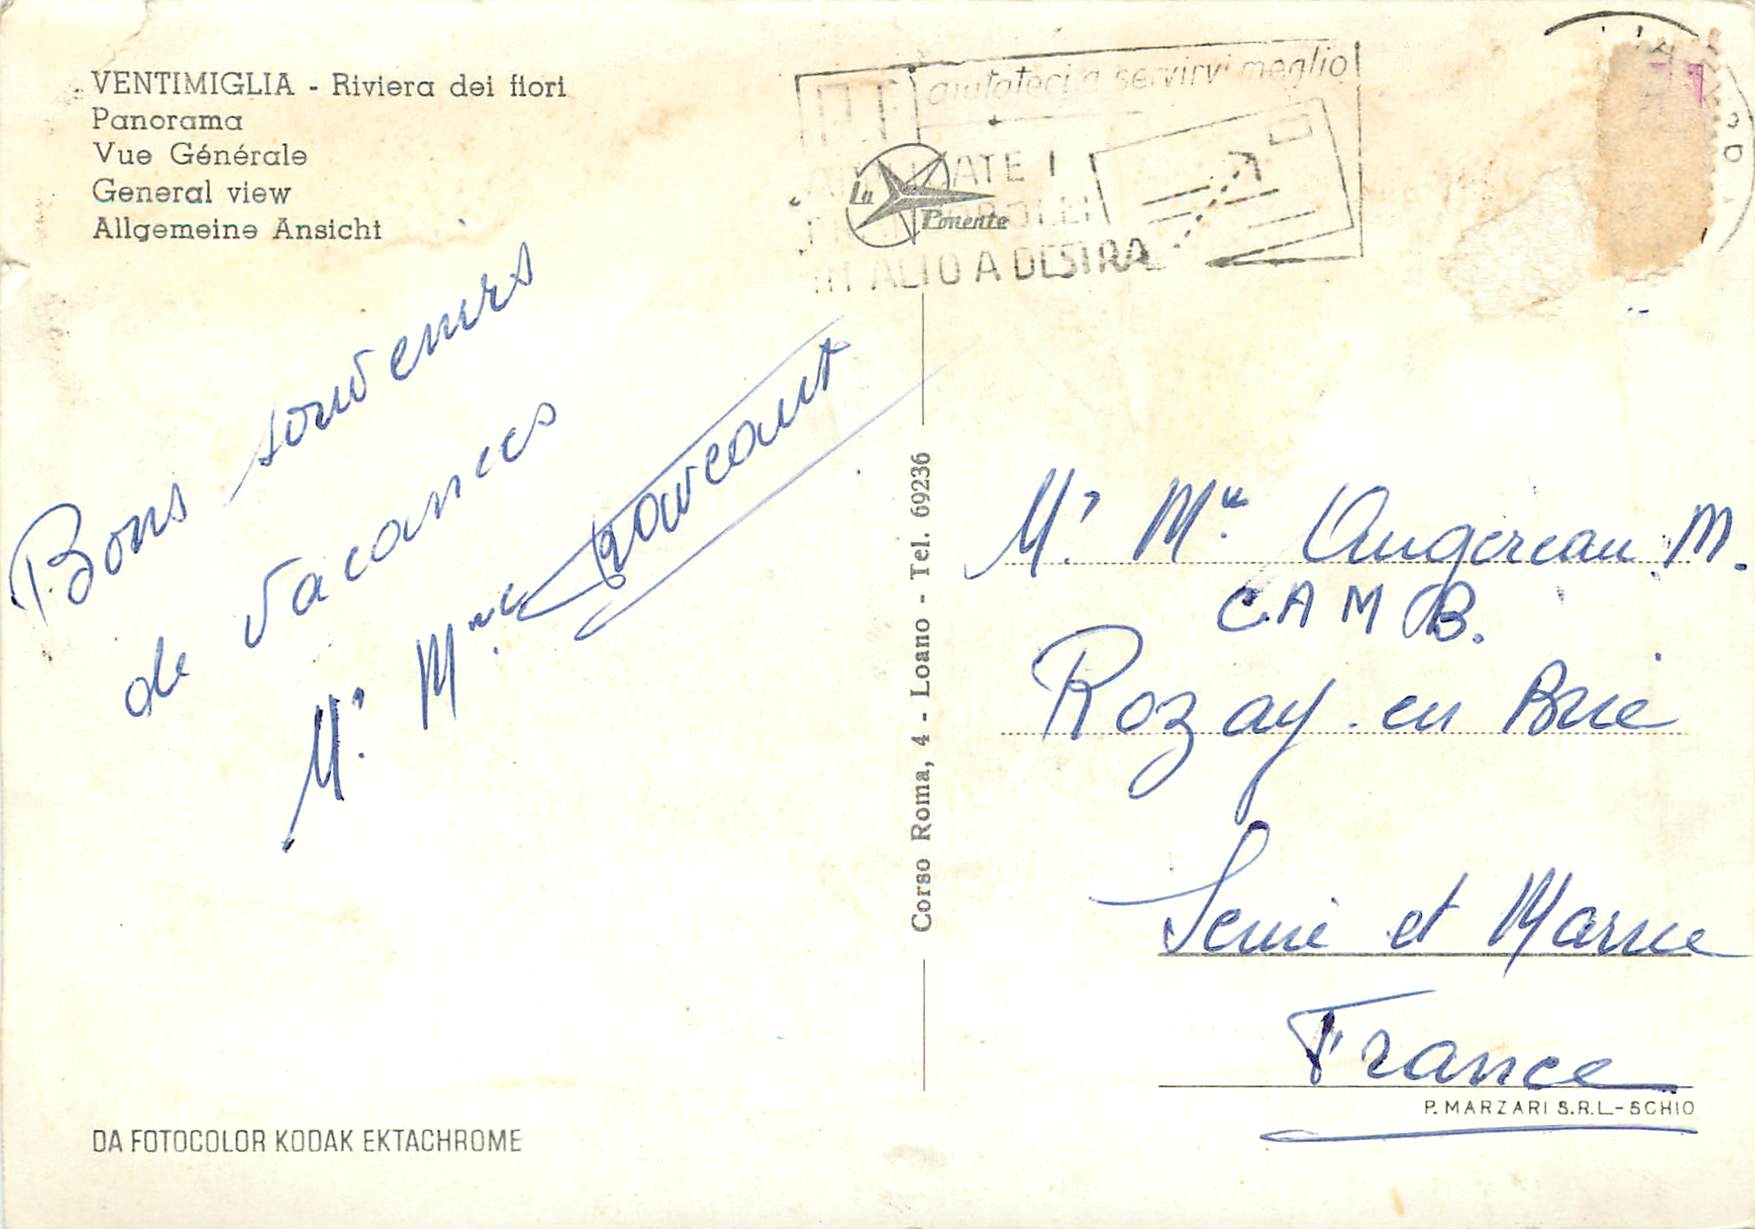 VENTIMIGLIA - Riviera dei fiori
Panorama
Vue Générale
General view
Allgemeine Ansicht
PT
aiutateci a servirvi meglio
IN ALTO A DESTRA
La
Ponente
Bons souvenirs
de vacances
Mr. Mme
Corso Roma, 4 - Loano - Tel. 69236
Mr. Mme Augereau M.
C.A M B.
Rozay en Brie
Seine et Marne
France
P. MARZARI S.R.L.-SCHIO
DA FOTOCOLOR KODAK EKTACHROME